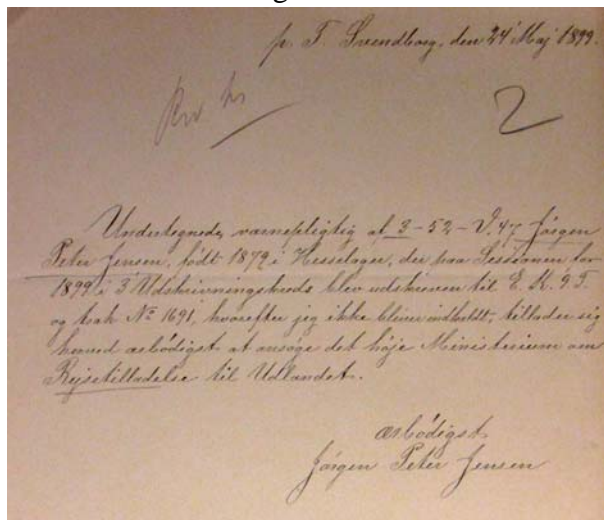 p. T. Svendborg, den 24 Maj 1899.
2
Undertegnede, værnepligtig af 3-52-V.47 Jörgen
Peter Jensen, född 1879 i Hesselager, der paa Sessionen for
1899 i 3' Udskrivningskreds blev udskreven til E. K. 9 T.
og trak № 1691, hvorefter jeg ikke bliver indkaldt, tillader sig
herved ærbödigst at ansöge det höje Ministerium om
Rejsetilladelse til Udlandet.
Ærbödigst
Jörgen Peter Jensen